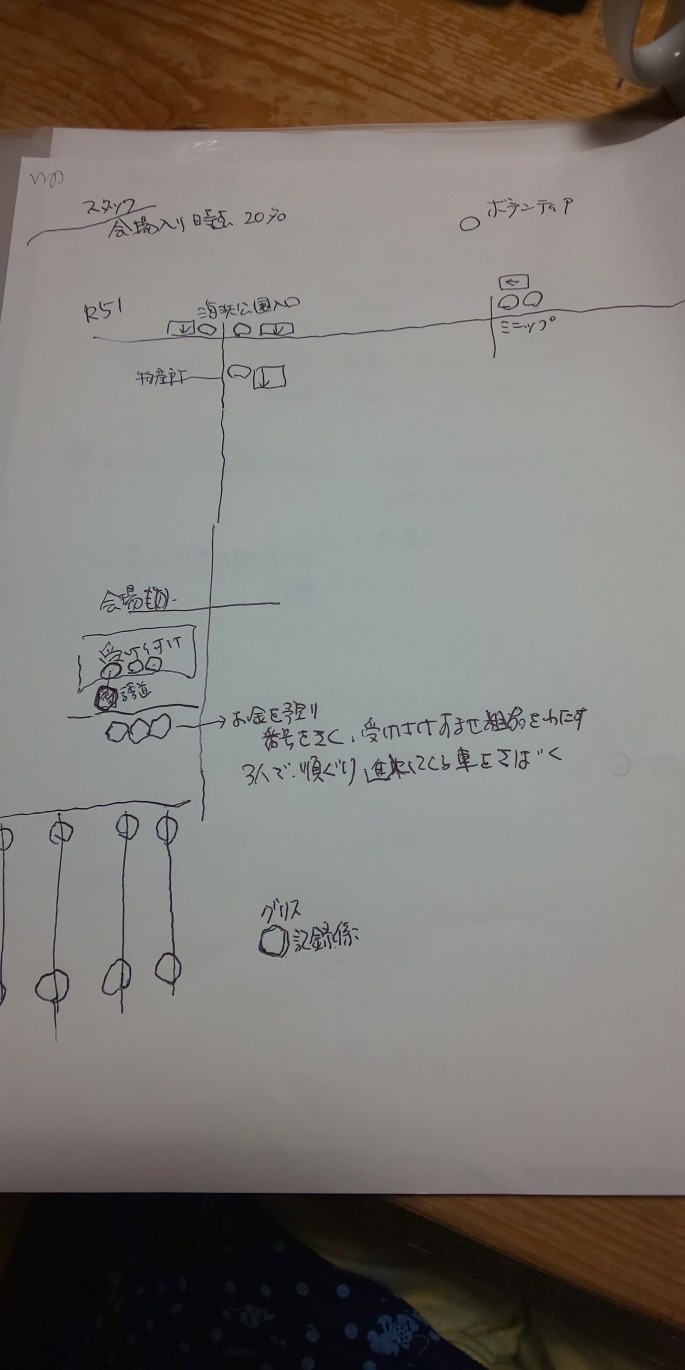 スタッフ
会場入り時点 20%
ボランティア
R51
海浜公園入口
←
ミニップ
↓ ↓
物産所
↓
会場
受け付け
誘道
お金を預り
番号をきく、受けつけすませ をわたす
3人で、順ぐり 進んでくる車をさばく
グリス
記録係